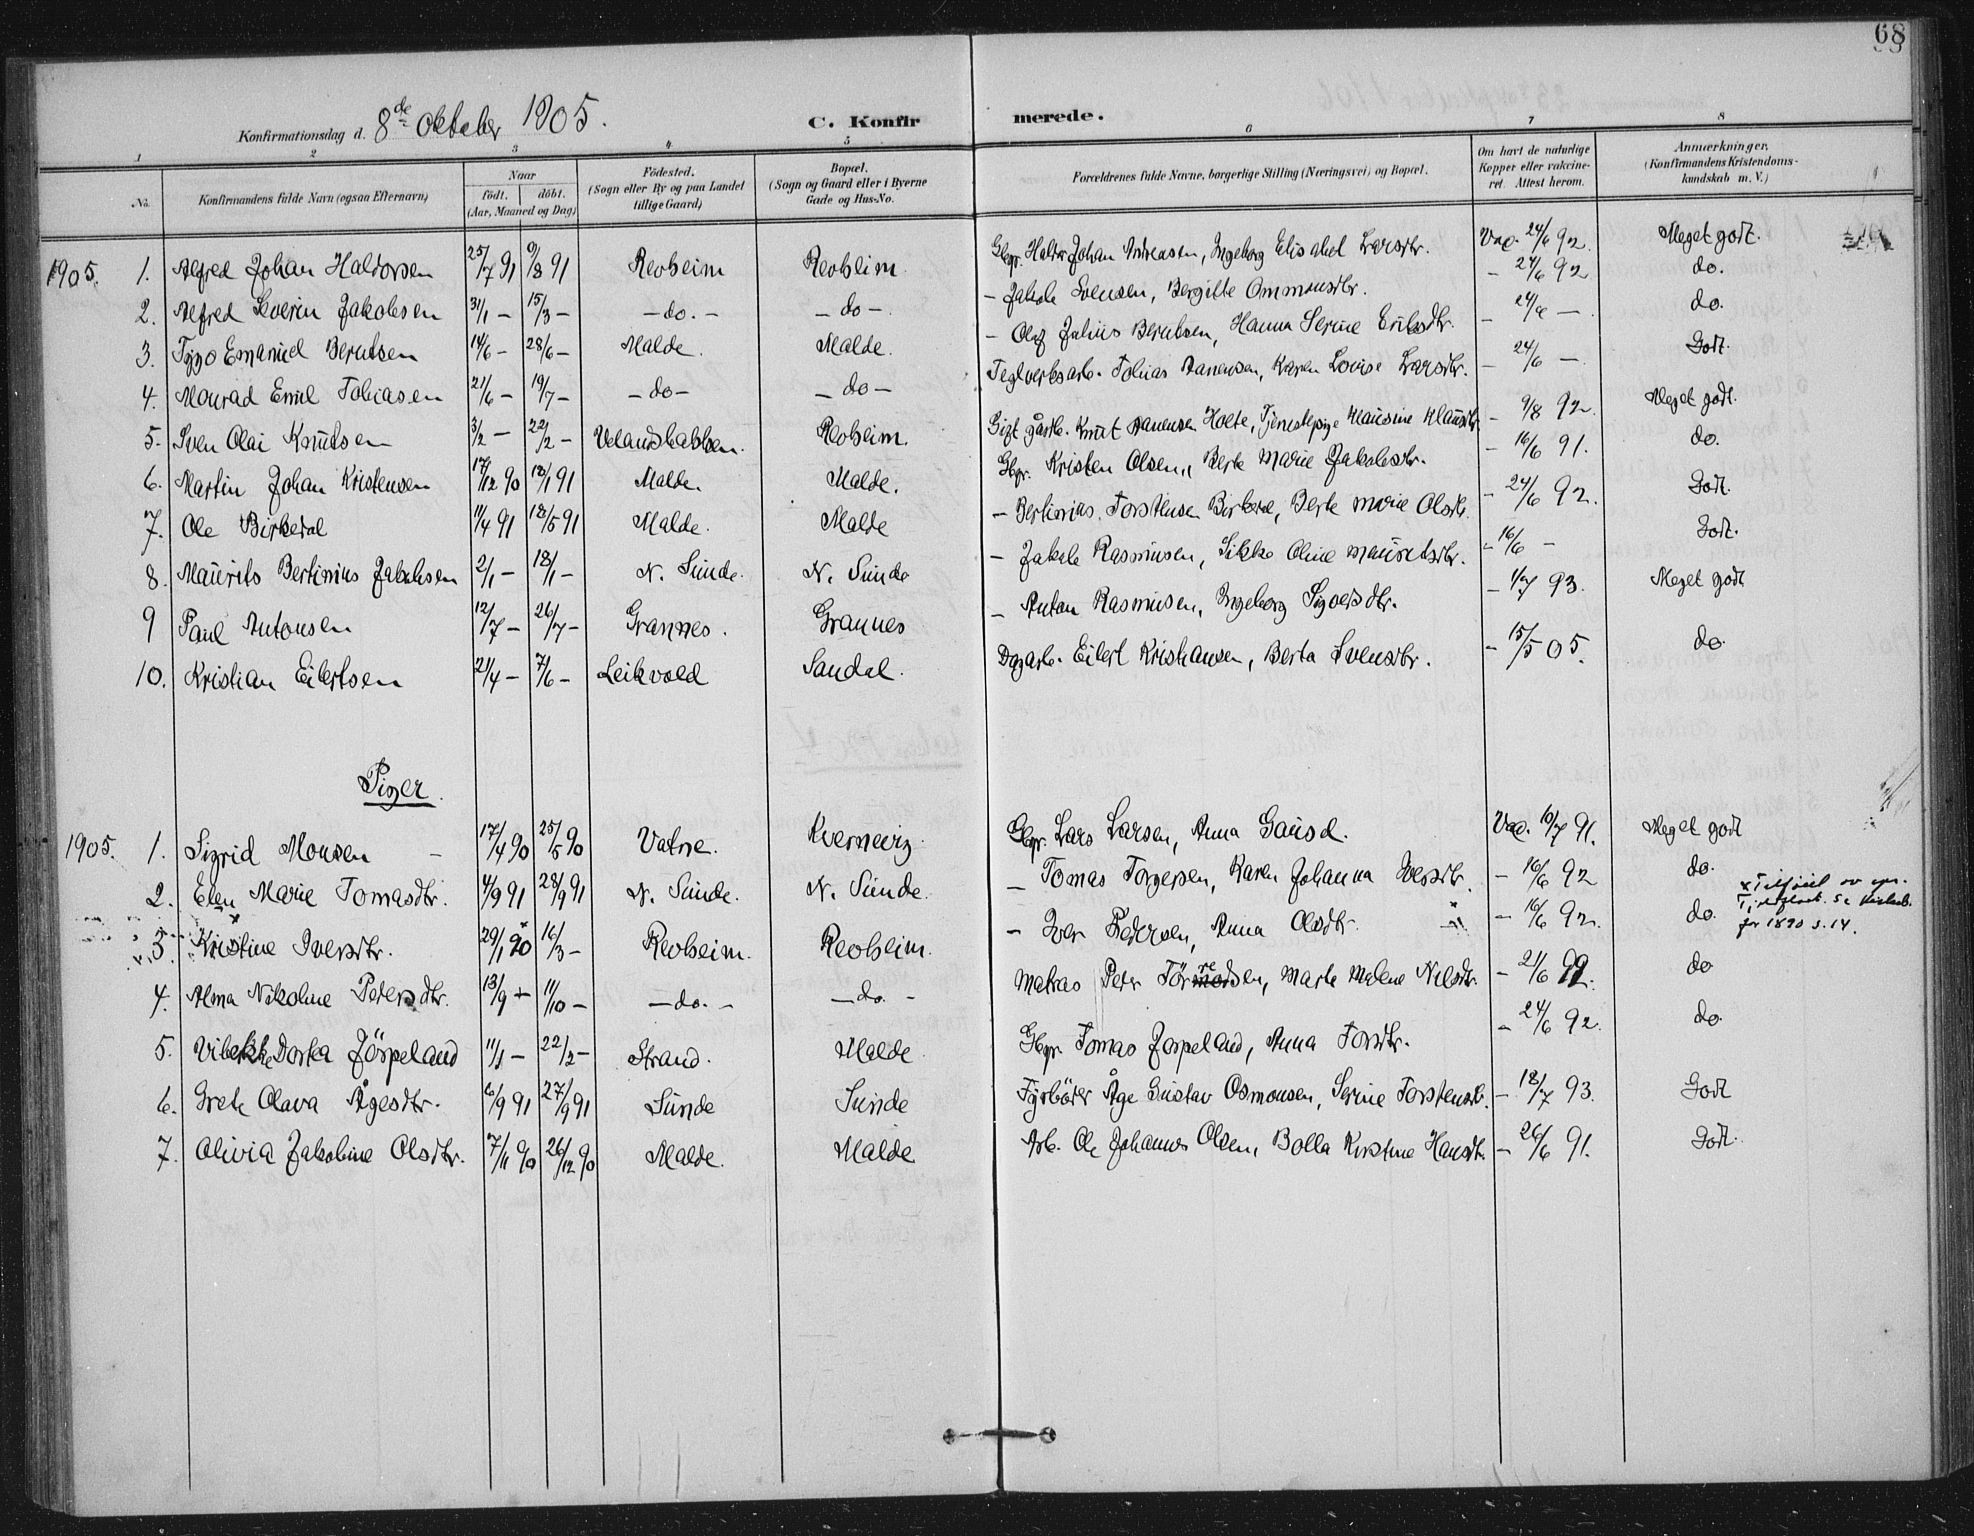 68
Konfirmationsdag d. 8de Oktober 1905. C. Konfirmerede.
1 2 3 4 5 6 7 8
No. Konfirmandens fulde Navn (ogsaa Efternavn) Naar födt. döbt. (Aar, Maaned og Dag) Födested. (Sogn eller By og paa Landet tillige Gaard) Bopæl. (Sogn og Gaard eller i Byerne Gade og Hus-No. Forældrenes fulde Navne, borgerlige Stilling (Næringsvei) og Bopæl. Om havt de naturlige Kopper eller vakcineret. Attest herom. Anmærkninger, (Konfirmandens Kristendomskundskab m. V.)
1905. 1. Alfred Johan Haldorsen 25/7 91 9/8 91 Revheim Revheim. Gbr. Haldor Johan Andreasen, Ingeborg Elisabet Larsdtr. Vac. 24/6 92. Meget godt.
2. Alfred Severin Jakobsen 31/1 - 15/3 - - do. - - do - - Jakob Svensen, Bergitte Ommonsdtr. - 24/6 92 do.
3. Tygo Emanuel Berntsen 14/6 - 28/6 - Malde. Malde. - Olaf Julius Berntsen, Hanna Serine Eriksdtr. - 24/6 - do.
4. Monrad Emil Tobiasen 21/6 - 19/7 - - do - - do - Teglverksarb. Tobias Aanensen, Karen Lovise Larsdtr. - 24/6 - Godt.
5. Sven Olai Knutsen 3/2 - 22/2 - Velandsbakken. Revheim. Gift gårdb. Knut Aanensen Holte, Tjenestepige Klausine Klausdtr. - 9/8 92. Meget godt.
6. Martin Johan Kristensen 17/12 90 18/1 91 Malde. Malde. Gbr. Kristen Olsen, Berte Marie Jakobsdtr. - 16/6 91. do.
7. Ole Birkedal 11/4 91 18/5 91 Malde. Malde - Bertinius Torstensen Birkedal, Berte Marie Olsdtr. - 24/6 92. Godt.
8. Maurits Bertinius Jakobsen 2/1 - 18/1 - N. Sunde. N. Sunde - Jakob Rasmusen, Sikke Oline Mauritsdtr. - 16/6 - Godt.
9 Paul Antonsen 12/7 - 26/7 - Grannes. Grannes - Anton Rasmusen, Ingeborg Sigversdtr. - 1/7 93. Meget godt
10. Kristian Eilertsen 21/4 - 7/6 - Leikvold Sandal. Dagarb. Eilert Kristiansen, Berta Svensdtr. - 15/5 05. do
Piger.
1905. 1. Sigrid Monsen 17/4 90 25/5 90 Vatne. Kvernevig Gbr. Lars Larsen, Anna Gausd. Vac. 16/7 91. Meget godt
2. Elen Marie Tomasdtr. 4/9 91 28/9 91 N. Sunde. N. Sunde. - Tomas Torgersen, Karen Johanna Iversdtr. - 16/6 92 do.
x Tilføiet
for 1890 s. 14.
3. Kristine Iversdtr. 29/1 90 x 16/3 - Revheim. Revheim. - Iver Pedersen, Anna Olsdtr. - 16/6 92. do.
4. Alma Nikoline Petersdtr. 13/9 - 11/10 - - do. - - do. - Matros Peter Tørresen, Marte Malene Nilsdtr. - 21/6 92. do
5. Vibekke Dorka Jörpeland 11/1 - 22/2 - Strand. Malde Gbr. Tomas Jørpeland, Anna Torsdtr. - 24/6 92. do
6. Grete Olava Ågesdtr. 6/9 91 27/9 91 Sunde Sunde Fyrböter Åge Gustav Osmonsen, Serine Torstensdtr. - 18/7 93. Godt
7. Olivia Jakobine Olsdtr. 7/11 90 26/12 90 Malde. Malde Arb. Ole Johannes Olsen, Bolla Kirstine Hansdtr. - 26/6 91. Godt.